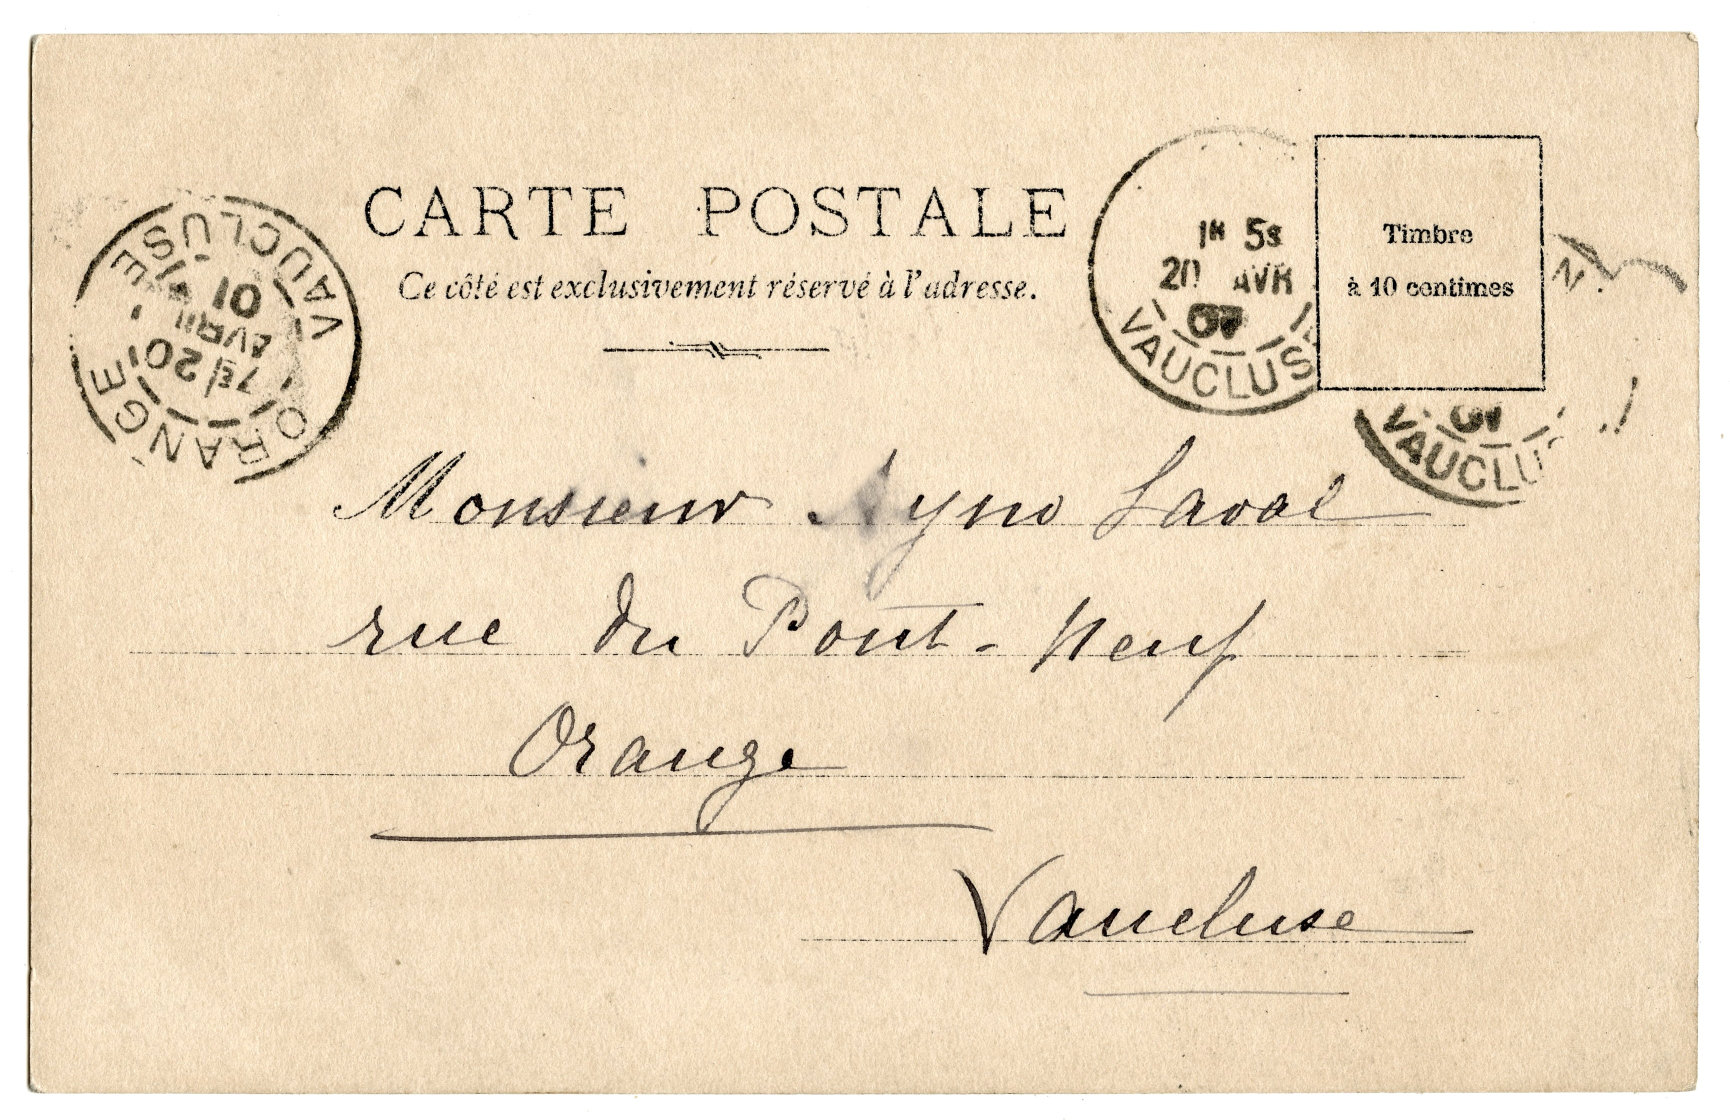 CARTE POSTALE
Ce côté est exclusivement réservé à l'adresse.
Timbre
à 10 centimes
1H 5S
20 AVR
VAUCLUSE
N
01
VAUCLUSE
ORANGE
7E/20
AVRIL
01
VAUCLUSE
Monsieur Laval
rue du Pont-Neuf
Orange
Vaucluse